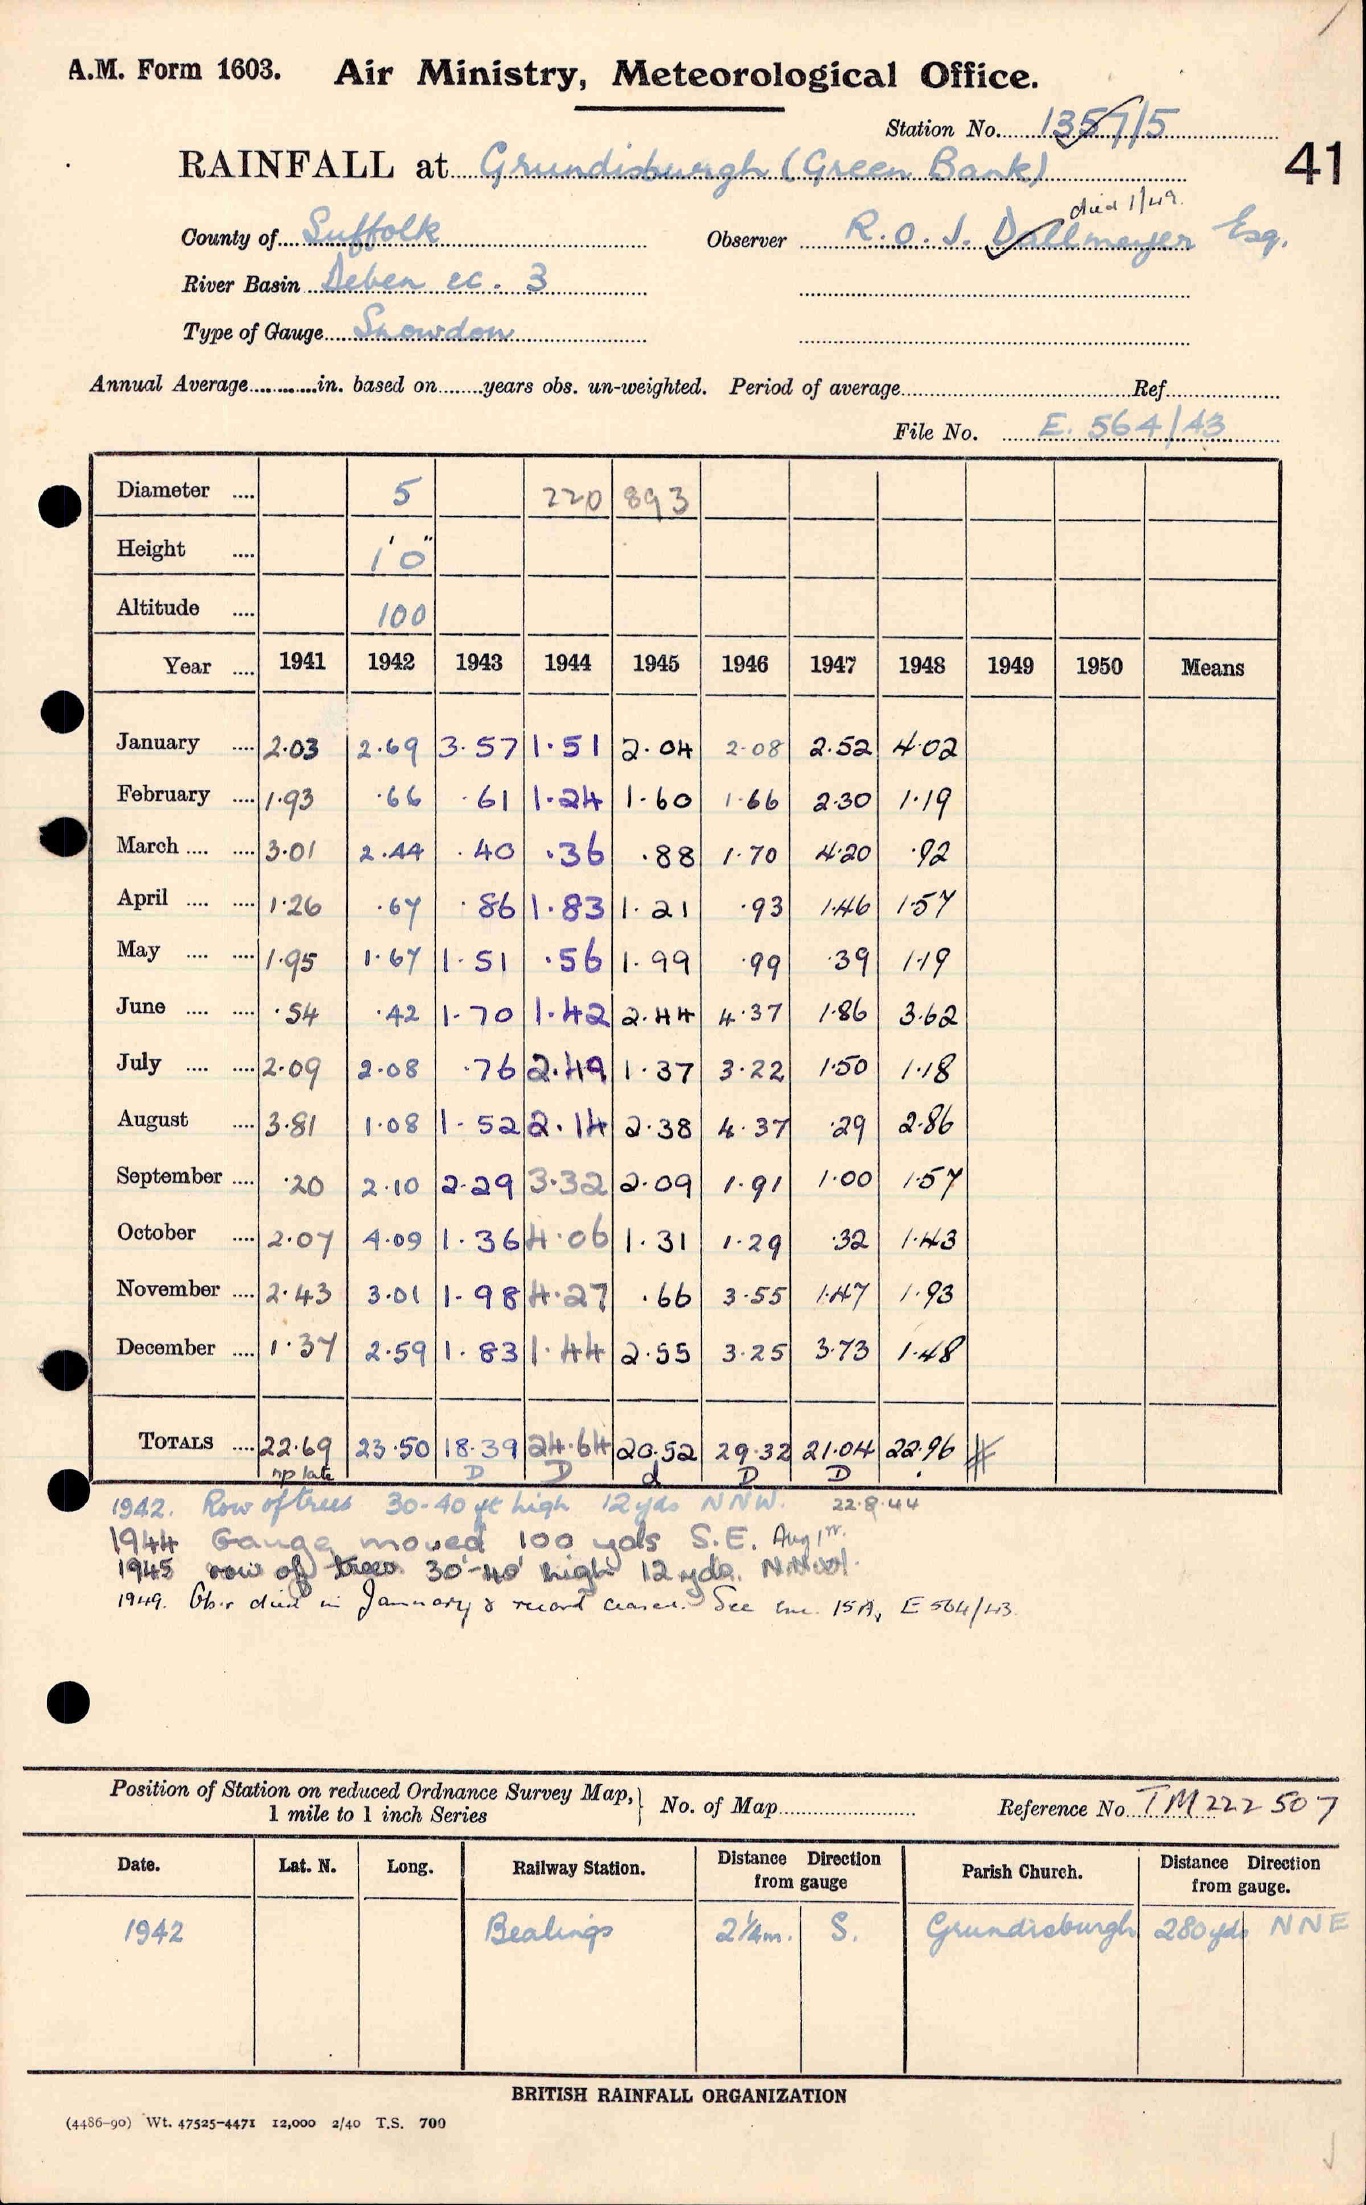 A.M. Form 1603. Air Ministry, Meteorological Office.
Station No. 1357/5
RAINFALL at Grundisburgh (Green Bank) 41
died 1/49.
County of Suffolk Observer R.O.J. Dallmeyer Esq.
River Basin Deben ec. 3
Type of Gauge Snowdon
Annual Average in. based on years obs. un-weighted. Period of average Ref
File No. E. 564/43
Diameter 5 220 893
Height 1' 0"
Altitude 100
Year 1941 1942 1943 1944 1945 1946 1947 1948 1949 1950 Means
January 2.03 2.69 3.57 1.51 2.04 2.08 2.52 4.02
February 1.93 .66 .61 1.24 1.60 1.66 2.30 1.19
March 3.01 2.44 .40 .36 .88 1.70 4.20 .92
April 1.26 .67 .86 1.83 1.21 .93 1.46 1.57
May 1.95 1.67 1.51 .56 1.99 .99 .39 1.19
June .54 .42 1.70 1.42 2.44 4.37 1.86 3.62
July 2.09 2.08 .76 2.49 1.37 3.22 1.50 1.18
August 3.81 1.08 1.52 2.14 2.38 4.37 .29 2.86
September .20 2.10 2.29 3.32 2.09 1.91 1.00 1.57
October 2.07 4.09 1.36 4.06 1.31 1.29 .32 1.43
November 2.43 3.01 1.98 4.27 .66 3.55 1.47 1.93
December 1.37 2.59 1.83 1.44 2.55 3.25 3.73 1.48
TOTALS 22.69 23.50 18.39 24.64 20.52 29.32 21.04 22.96
late D D d D D
1942. Row of trees 30-40 ft high 12 yds NNW. 22.8.44
1944 Gauge moved 100 yds S.E. Aug 1st.
1945 row of trees 30'-40' high 12 yds. N.N.W.
1949. Obsr died in January & record ceased. See enc. 15A, E 564/43.
Position of Station on reduced Ordnance Survey Map,
1 mile to 1 inch Series
No. of Map Reference No TM 222 507
Date. Lat. N. Long. Railway Station. Distance Direction from gauge Parish Church. Distance Direction from gauge.
1942 Bealings 2¼m. S. Grundisburgh 280 yds NNE
BRITISH RAINFALL ORGANIZATION
(4486-90) Wt. 47525-4471 12,000 2/40 T.S. 700